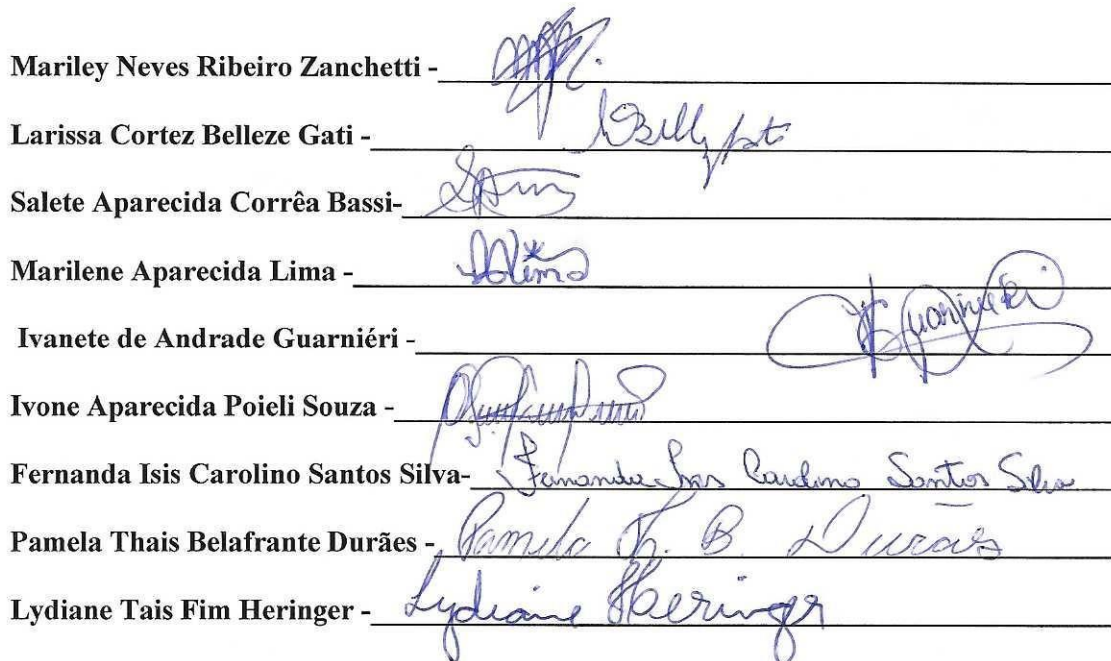 Mariley Neves Ribeiro Zanchetti -
Larissa Cortez Belleze Gati -
Salete Aparecida Corrêa Bassi-
Marilene Aparecida Lima - Lima
Ivanete de Andrade Guarniéri - Guarnieri
Ivone Aparecida Poieli Souza -
Fernanda Isis Carolino Santos Silva- Fernanda Isis Carolino Santos Silva
Pamela Thais Belafrante Durães - Pamela Th. B. Durães
Lydiane Tais Fim Heringer - Lydiane Heringer